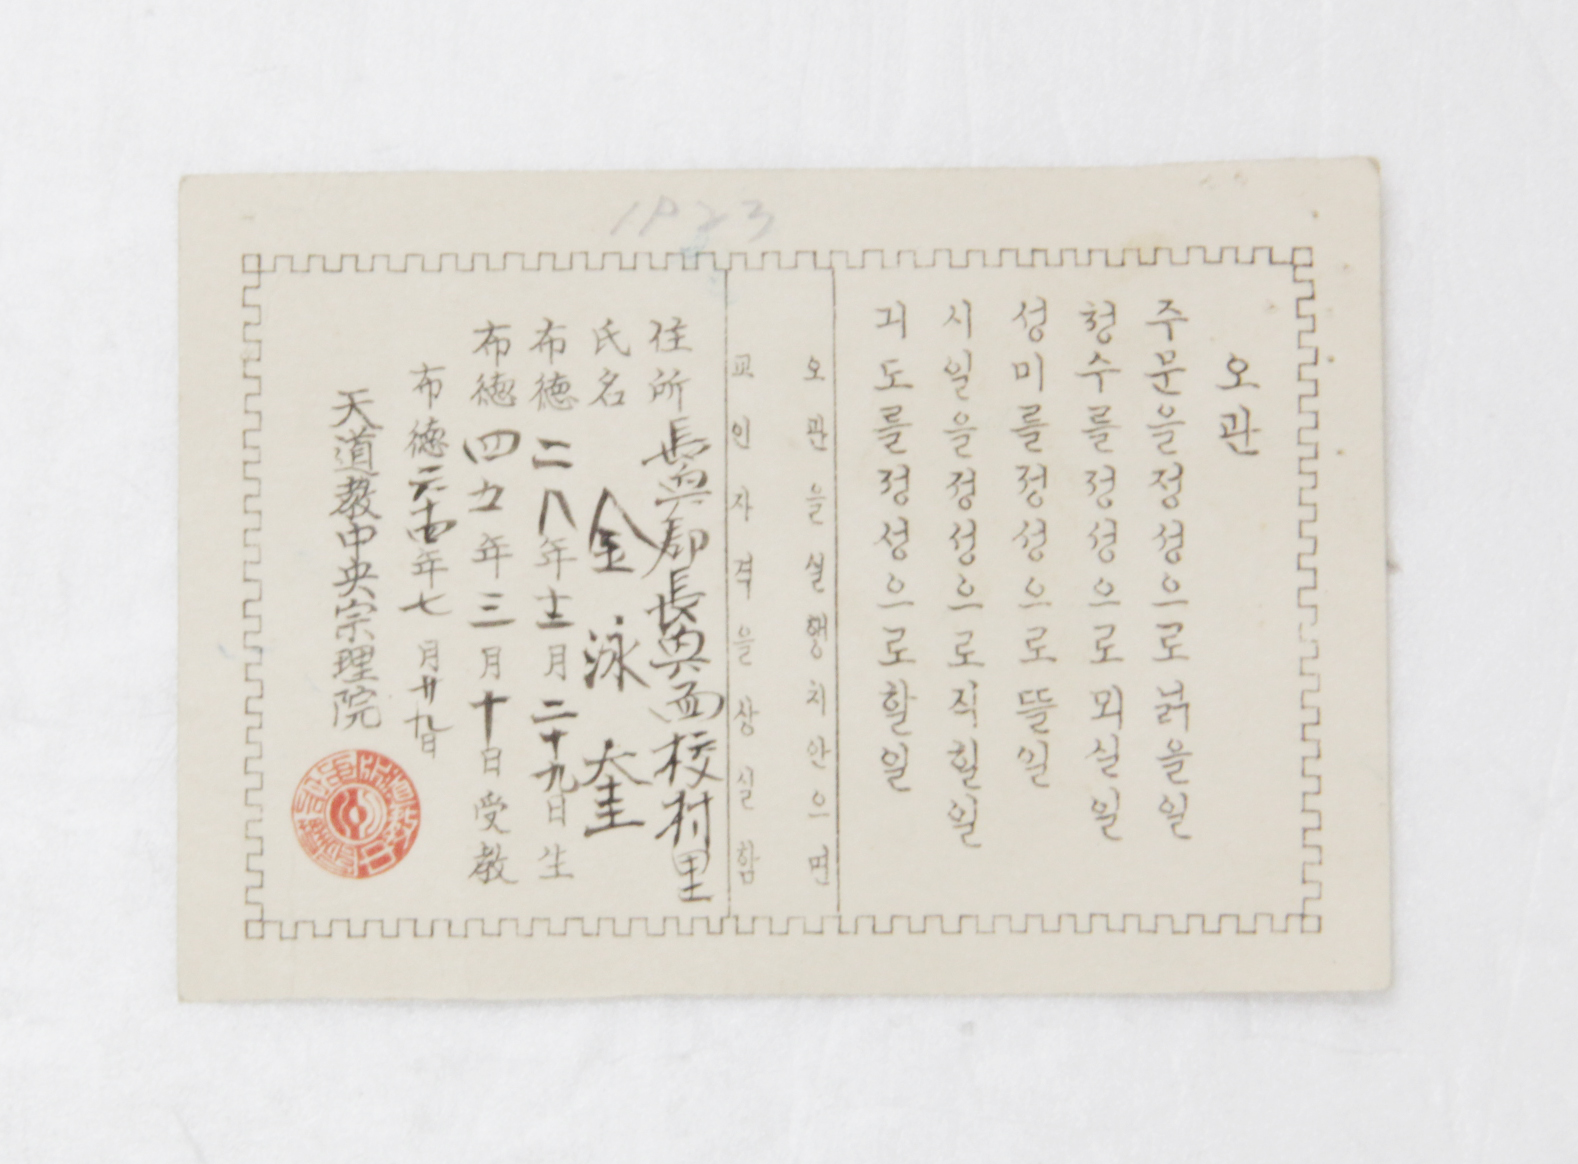 오관
주문을정성으로붉을일
청수를정성으로뫼실일
성미를정성으로뜰일
시일을정성으로직힐일
긔도를정성으로할일
오관을실행치안으면
교인자격을상실함
住所 長興郡長興面校村里
氏名 金泳奎
布德二八年十二月二十九日生
布德四九年三月十日受教
布德六十四年七月廿九日
天道教中央宗理院
1923